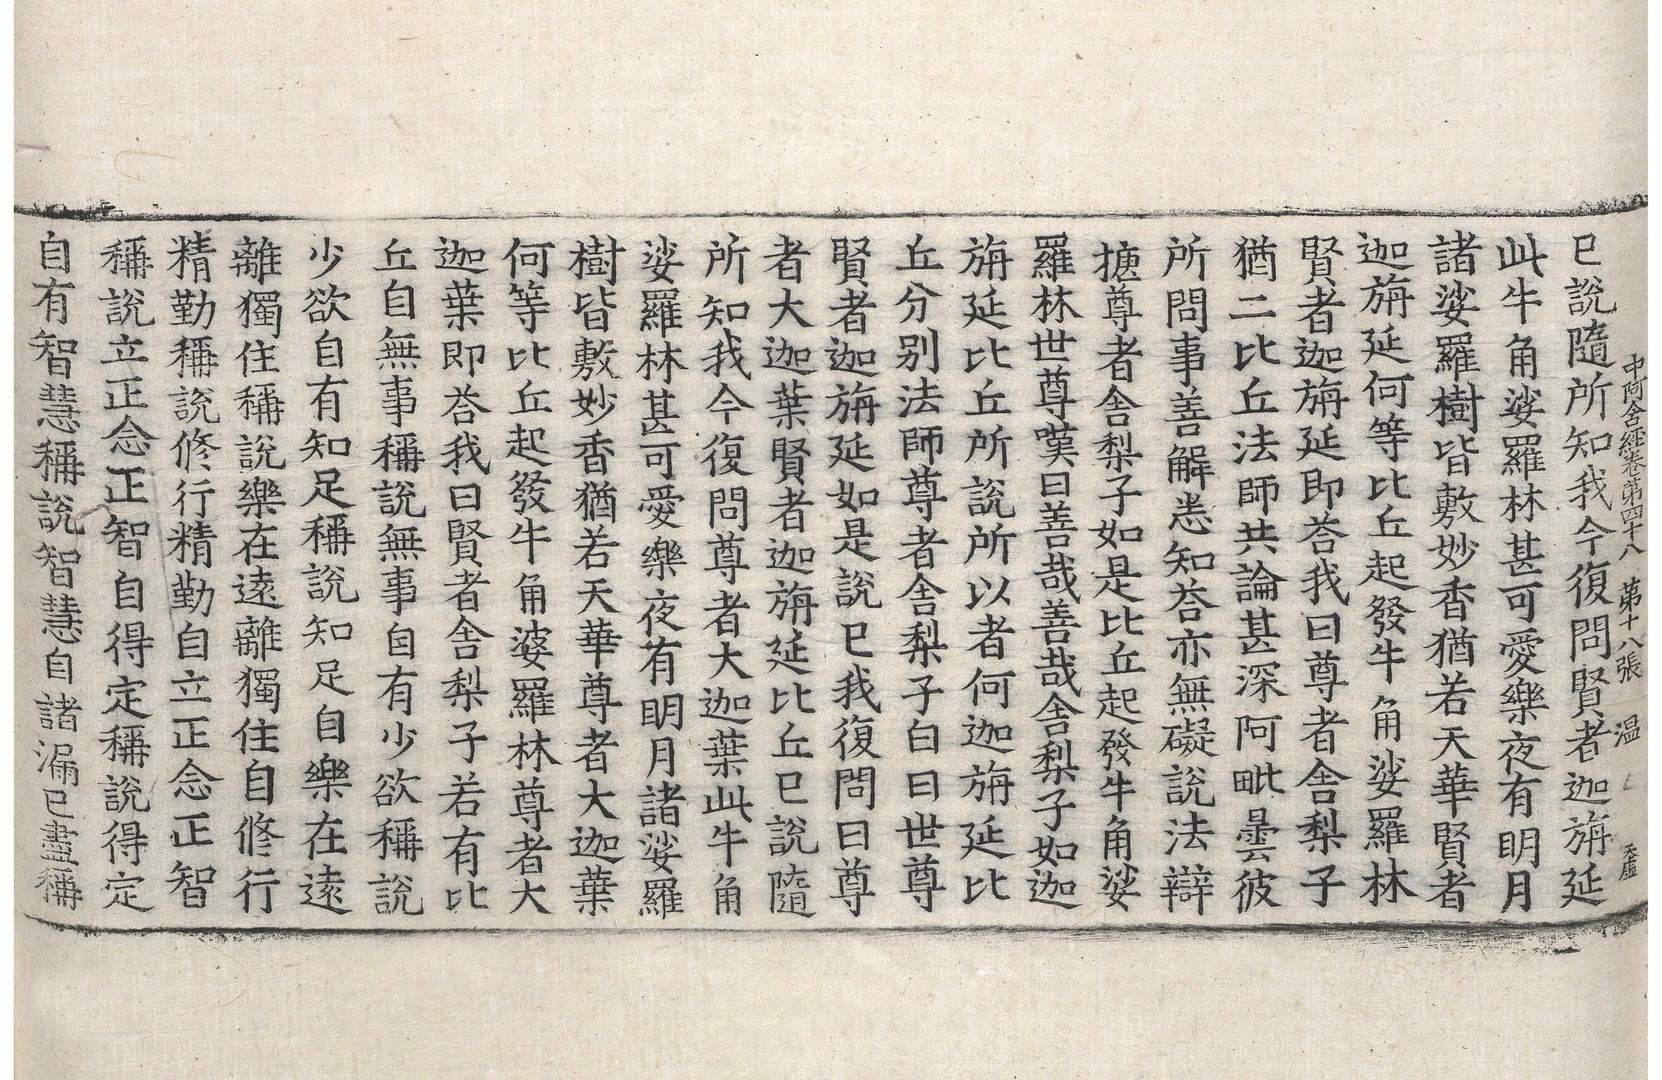 中阿含經卷第四十八　第十八張　温　天虛
已說隨所知我今復問賢者迦旃延
此牛角娑羅林甚可愛樂夜有明月
諸娑羅樹皆敷妙香猶若天華賢者
迦旃延何等比丘起發牛角娑羅林
賢者迦旃延即荅我曰尊者舍梨子
猶二比丘法師共論甚深阿毗曇彼
所問事善解悉知荅亦無礙說法辯
捷尊者舍梨子如是比丘起發牛角娑
羅林世尊嘆曰善哉善哉舍梨子如迦
旃延比丘所說所以者何迦旃延比
丘分别法師尊者舍梨子白曰世尊
賢者迦旃延如是說已我復問曰尊
者大迦葉賢者迦旃延比丘已說隨
所知我今復問尊者大迦葉此牛角
娑羅林甚可愛樂夜有明月諸娑羅
樹皆敷妙香猶若天華尊者大迦葉
何等比丘起發牛角娑羅林尊者大
迦葉即荅我曰賢者舍梨子若有比
丘自無事稱說無事自有少欲稱說
少欲自有知足稱說知足自樂在遠
離獨住稱說樂在遠離獨住自修行
精勤稱說修行精勤自立正念正智
稱說立正念正智自得定稱說得定
自有智慧稱說智慧自諸漏已盡稱